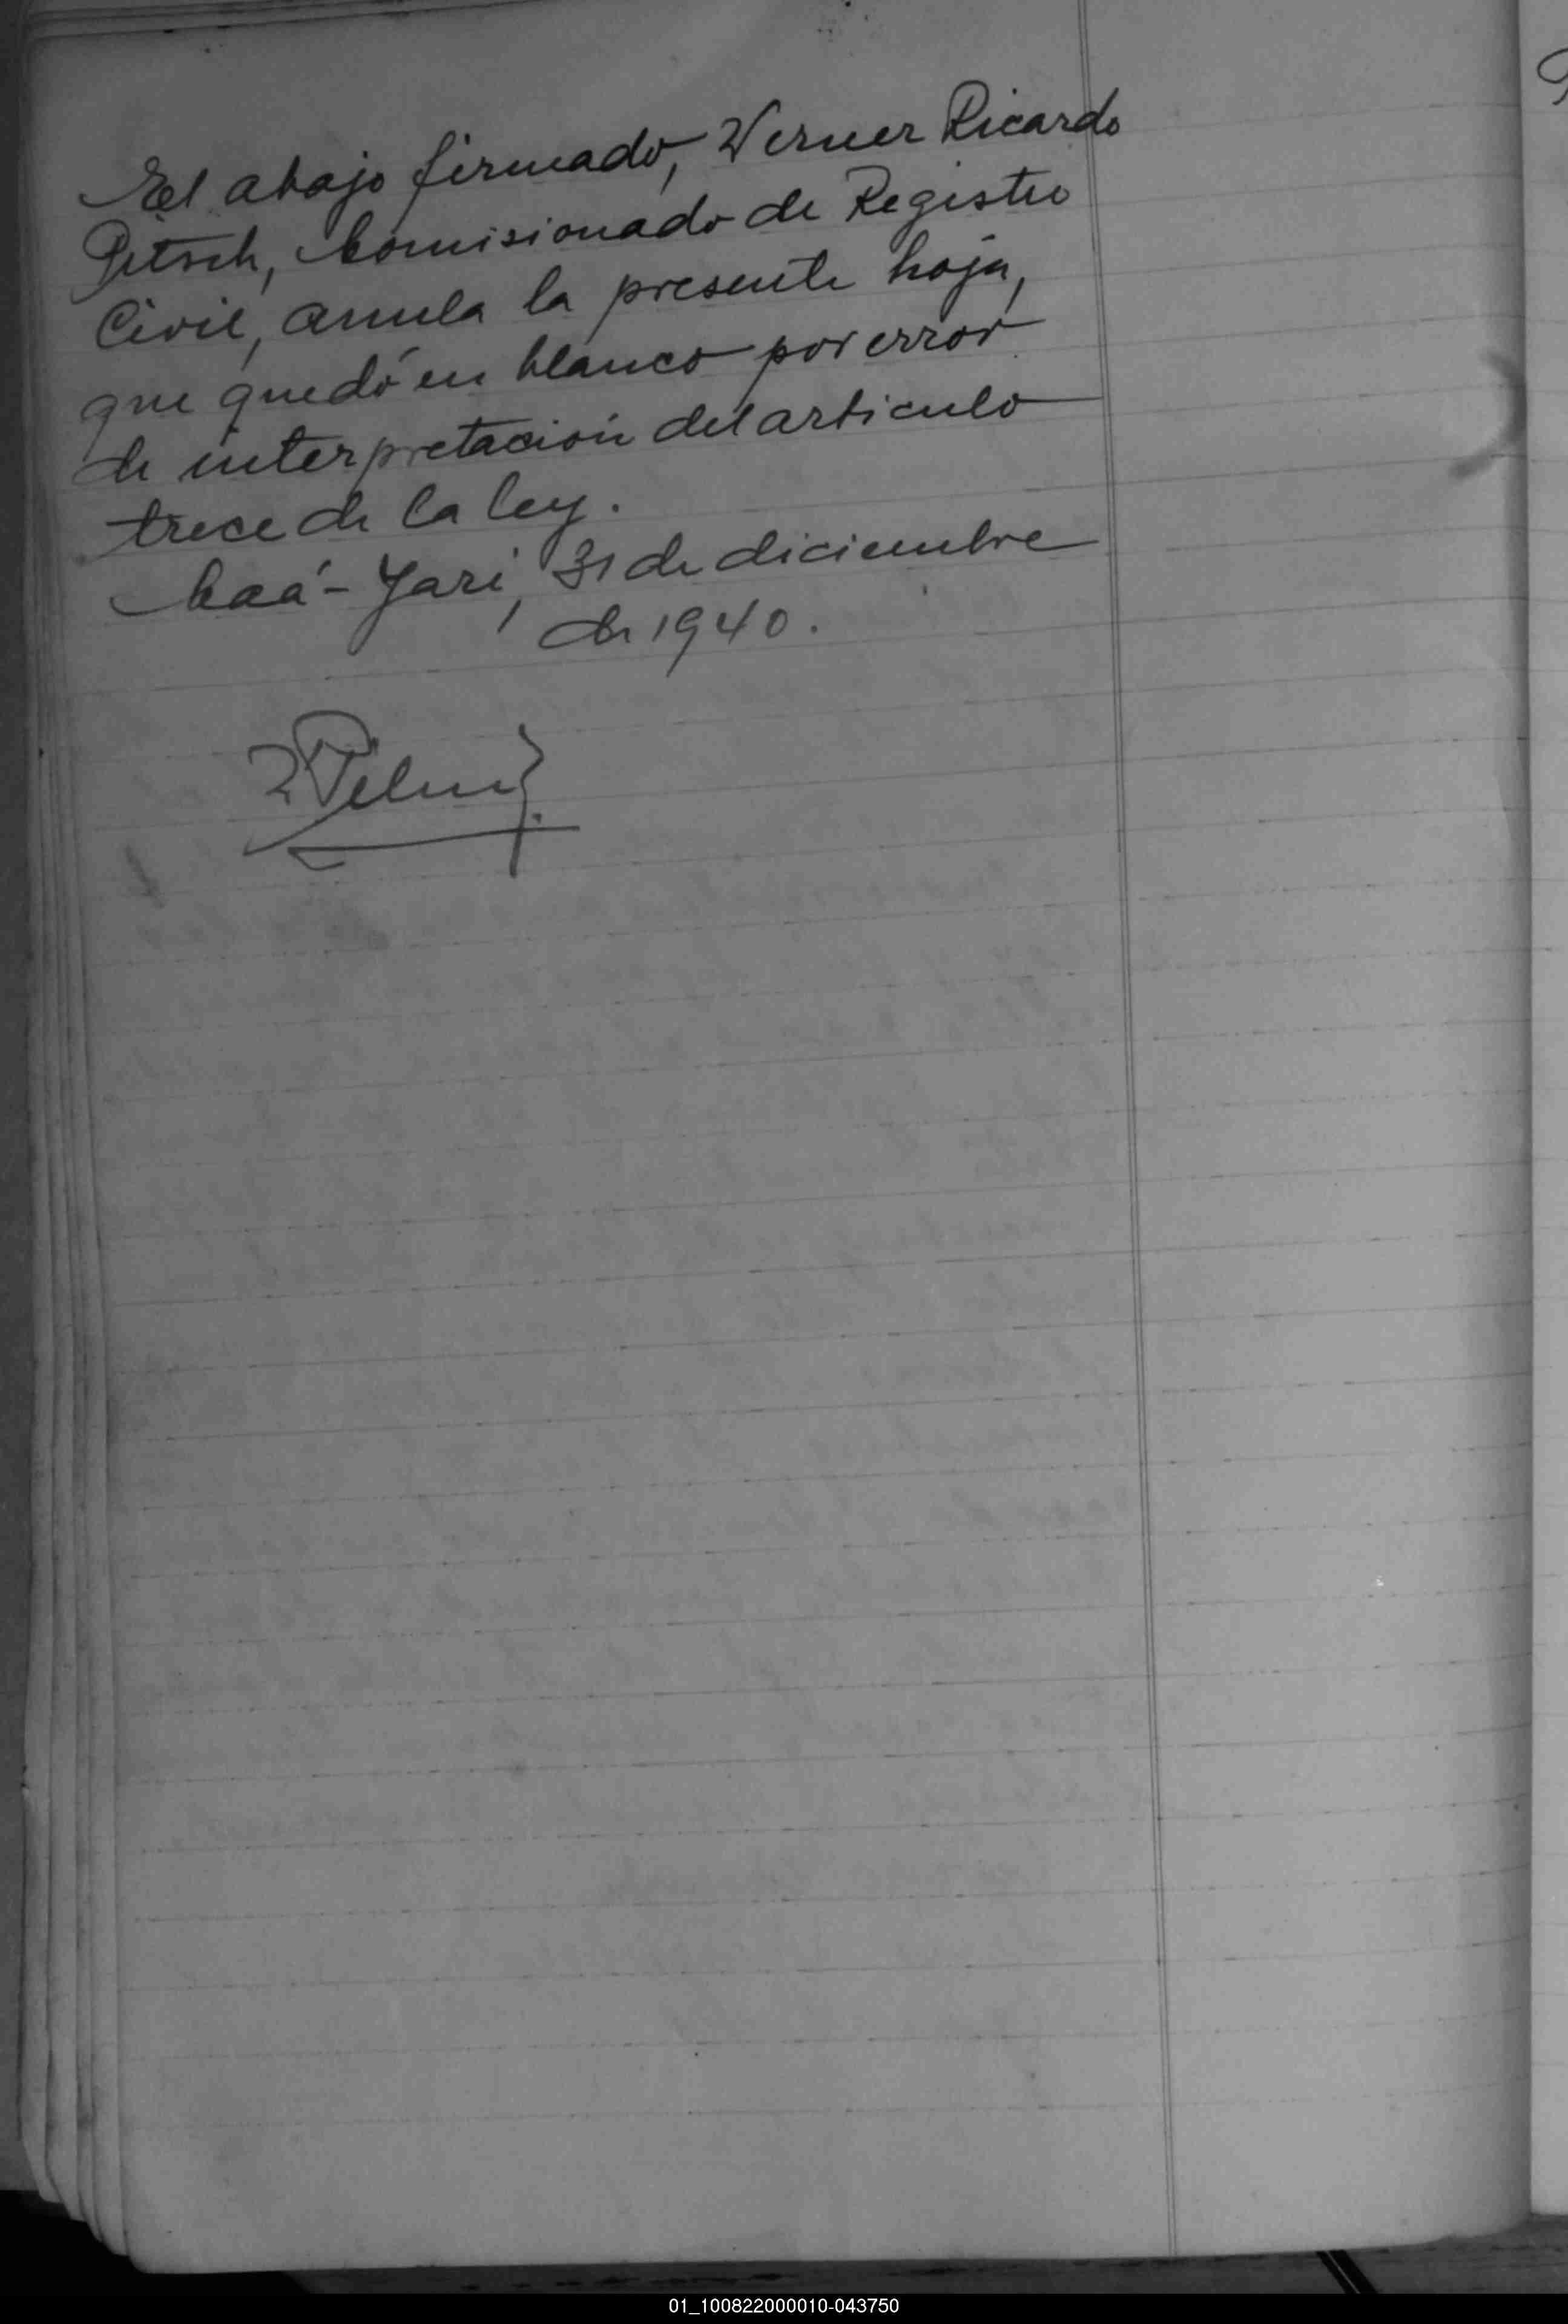 El abajo firmado, Werner Ricardo
Pitsch, Comisionado de Registro
Civil, anula la presente hoja,
que quedó en blanco por error
de interpretación del articulo
trece de la ley.
Caá-Yarí, 31 de diciembre
de 1940.
01_100822000010-043750